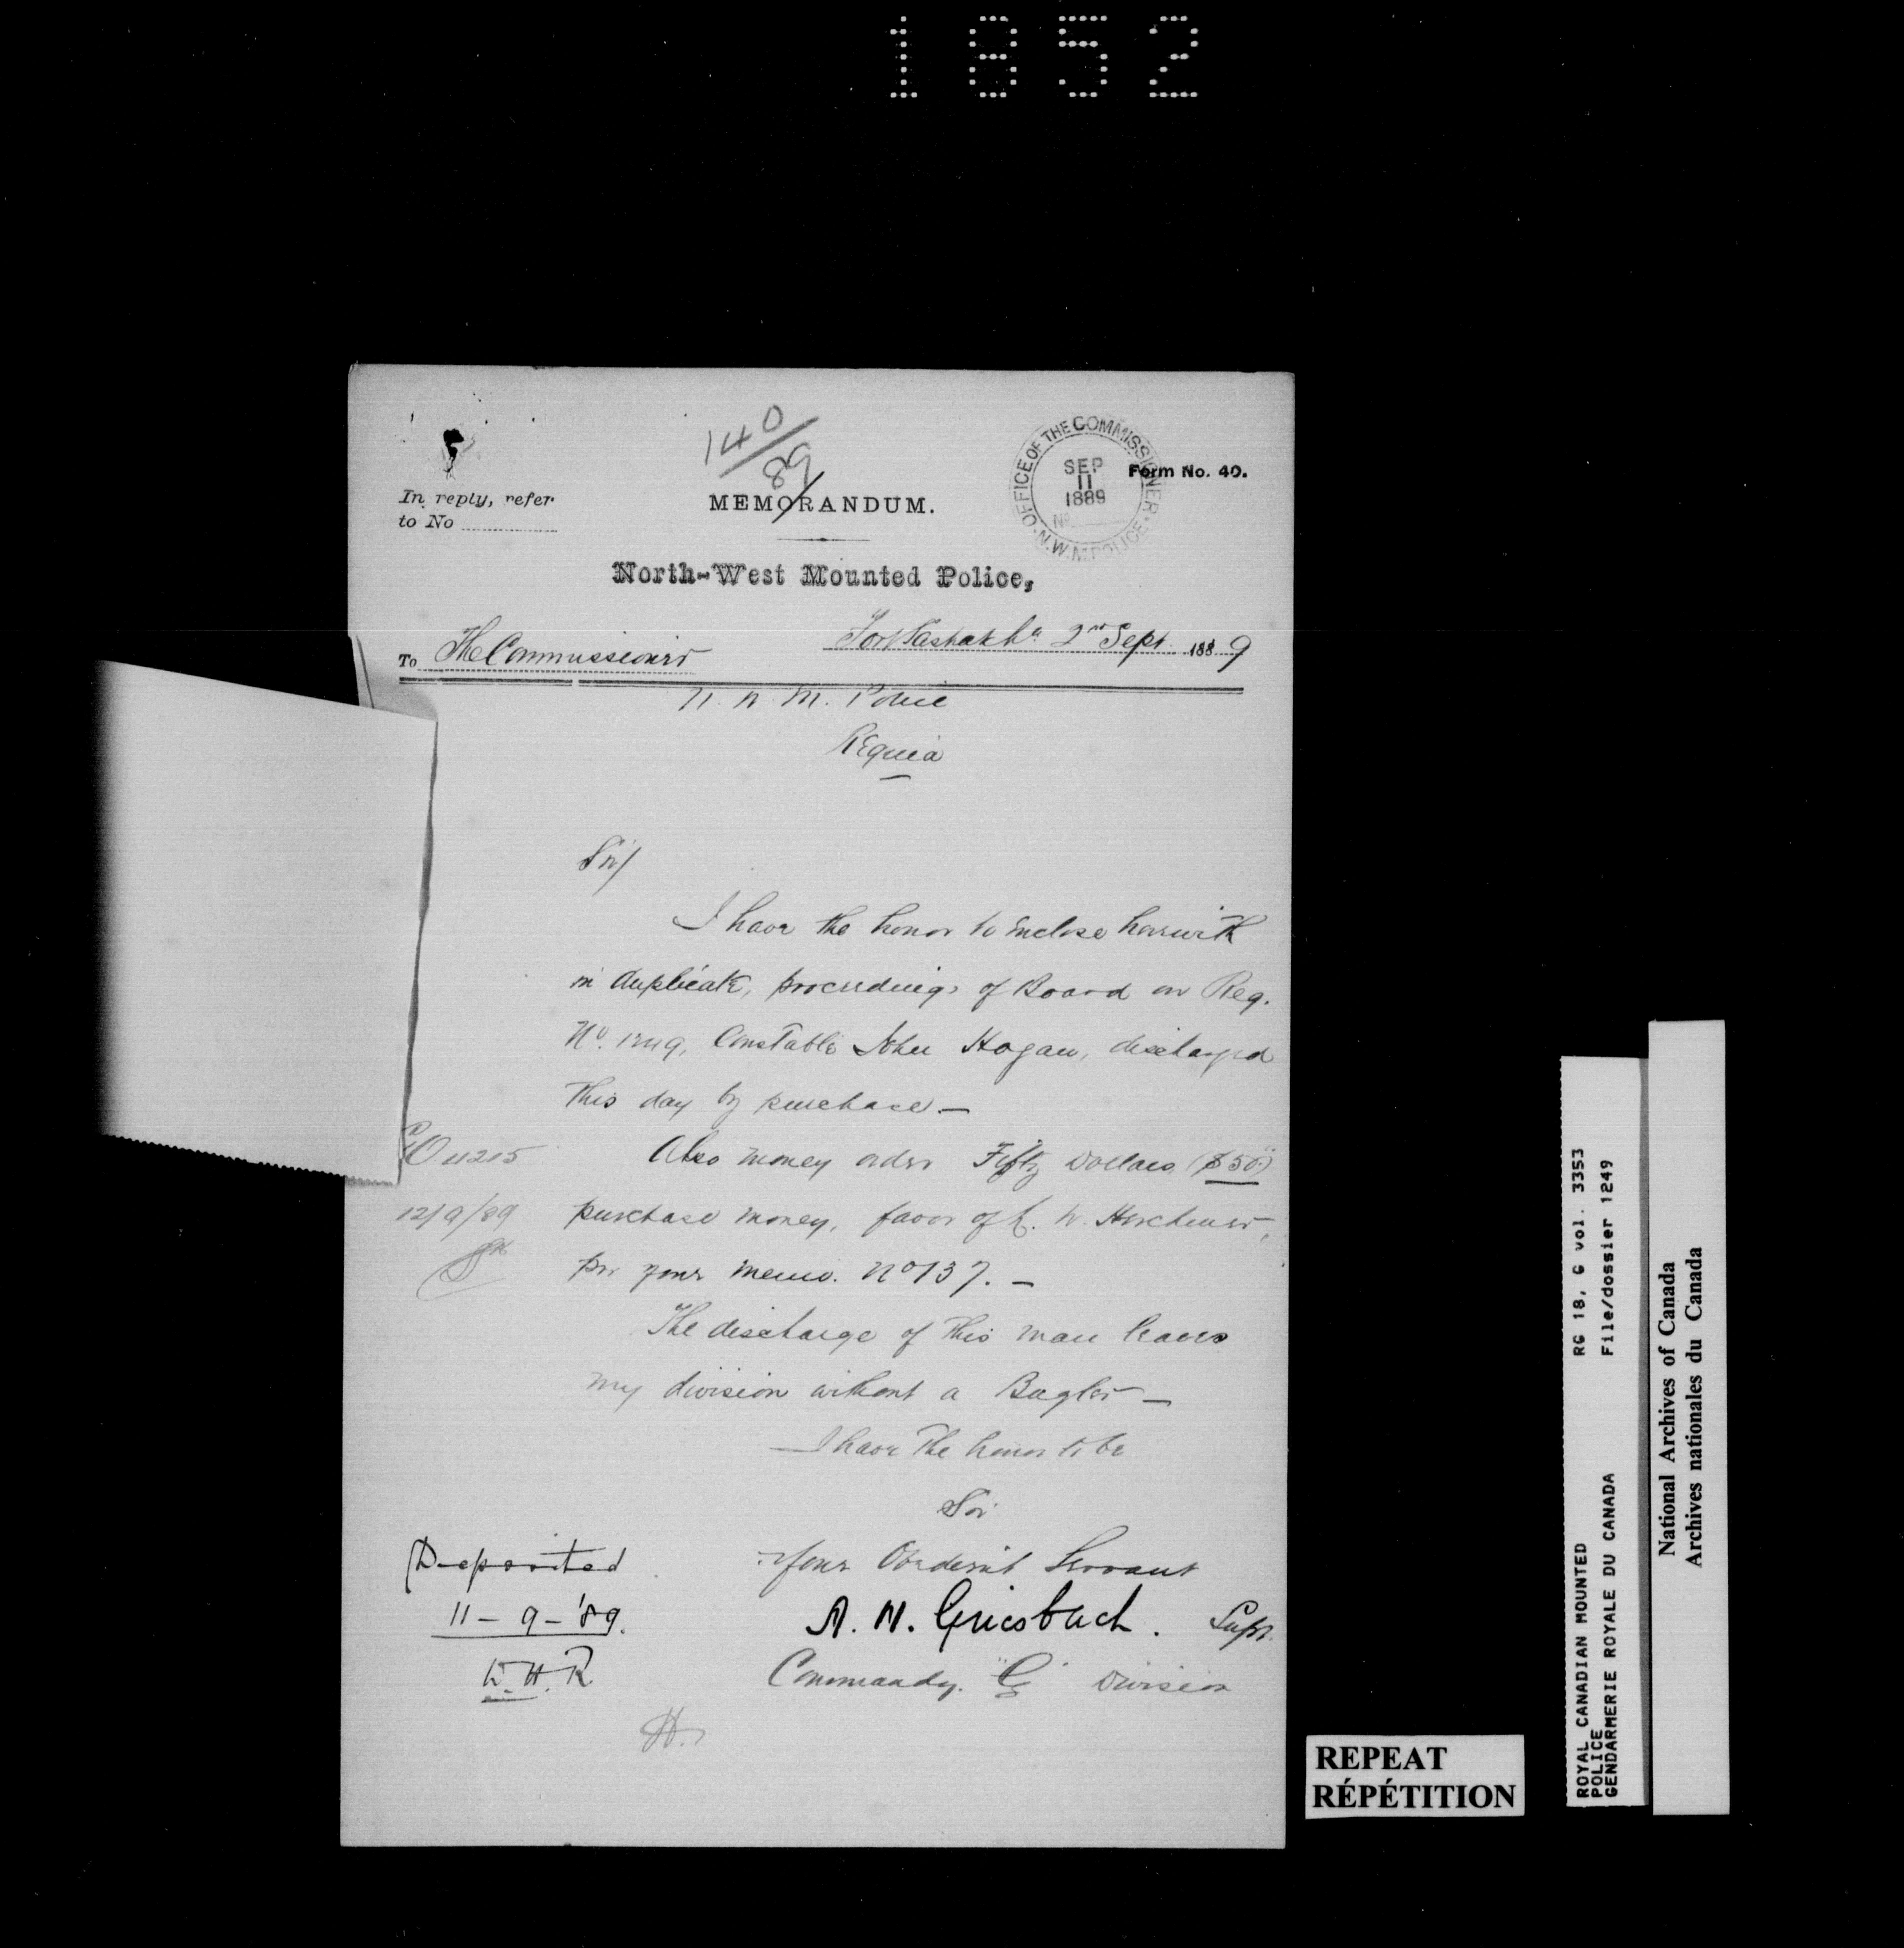 1852
140
89
OFFICE OF THE COMMISSIONER
SEP
11
1889
No
N.W.M. POLICE
Form No. 40.
In reply, refer
to No
MEMORANDUM.
North-West Mounted Police,
2nd Sept 1889
To The Commissioner
N. W. M. Police
Regina
Sir/
I have the honor to enclose herewith
in duplicate, proceedings of Board on Reg.
No. 1249, Constable John Hogan, discharged
this day by purchase —
Also money order Fifty Dollars ($50)
purchase money, favor of L. W. Herchmer,
per your memo. No 137. —
The discharge of this man leaves
my division without a Bugler —
I have the honor to be
Sir
Your Obedient Servant
A. H. Griesbach. Supt.
Commandg. "G" Division
O 11215
12/9/89
Deposited
11-9-'89.
W.H.R
H.
REPEAT
RÉPÉTITION
ROYAL CANADIAN MOUNTED
POLICE
GENDARMERIE ROYALE DU CANADA
RG 18, G vol. 3353
File/dossier 1249
National Archives of Canada
Archives nationales du Canada